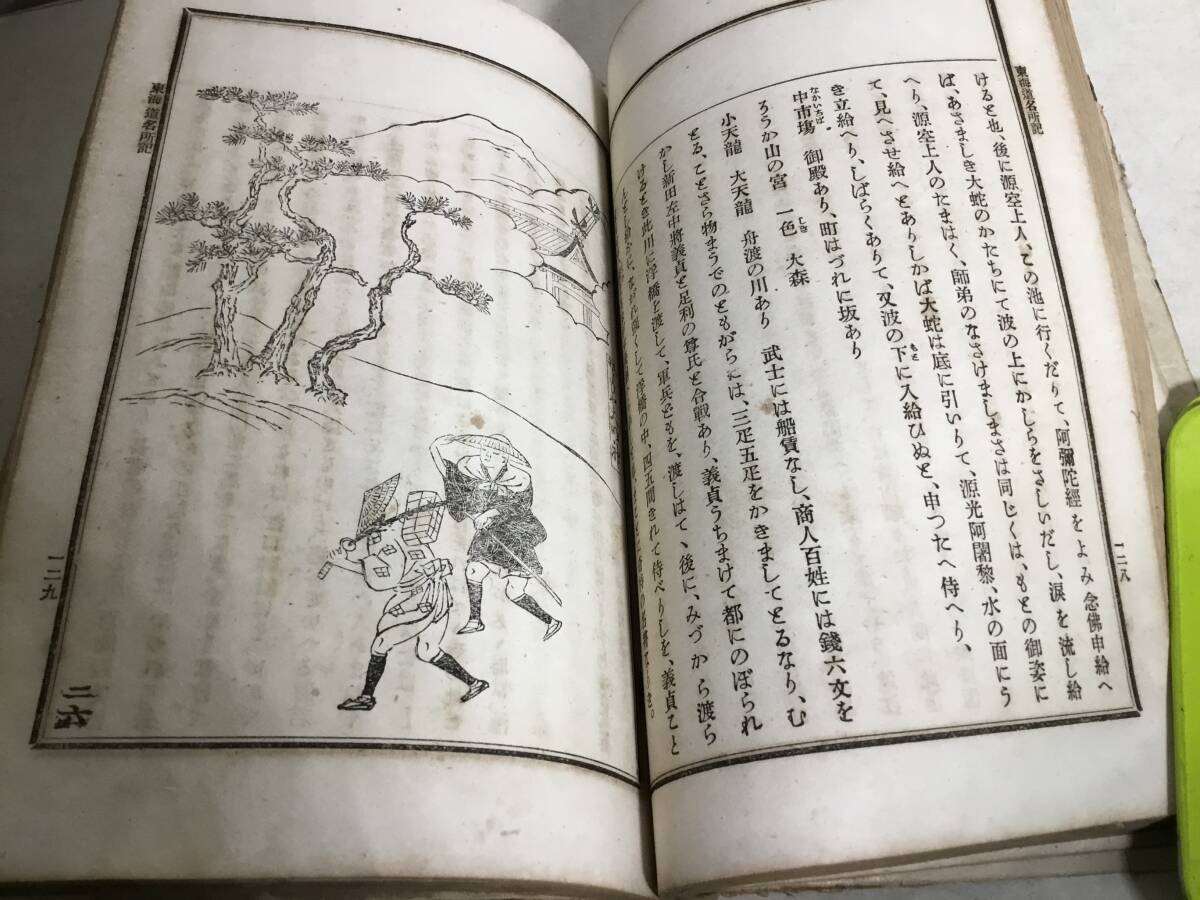 東海道名所記
一二八
けると也、後に源空上人、この池に行くだりて、阿彌陀經をよみ念佛申給へ
ば、あさましき大蛇のかたちにて波の上にかしらをさしいだし、涙を流し給
へり、源空上人のたまはく、師弟のなさけましまさは同じくは、もとの御姿に
て、見へさせ給へとありしかば大蛇は底に引いりて、源光阿闍黎、水の面にう
き立給へり、しばらくありて、又波の下に入給ひぬと、申つたへ侍へり、
もと
中市塲 御殿あり、町はづれに坂あり
なかいちば
ろうか山の宮 一色 大森
しき
小天龍 大天龍 舟渡の川あり 武士には船賃なし、商人百姓には錢六文を
とる、ことさら物まうでのともがらには、三疋五疋をかきましてとるなり、む
かし新田左中將義貞と足利の尊氏と合戰あり、義貞うちまけて都にのぼられ
けるとき此川に浮橋を渡して、軍兵どもを、渡しはて、後に、みづから渡ら
ながれ强くして浮橋の中、四五間きれて侍べりしを、義貞こと
東海道名所記
一二九
二六